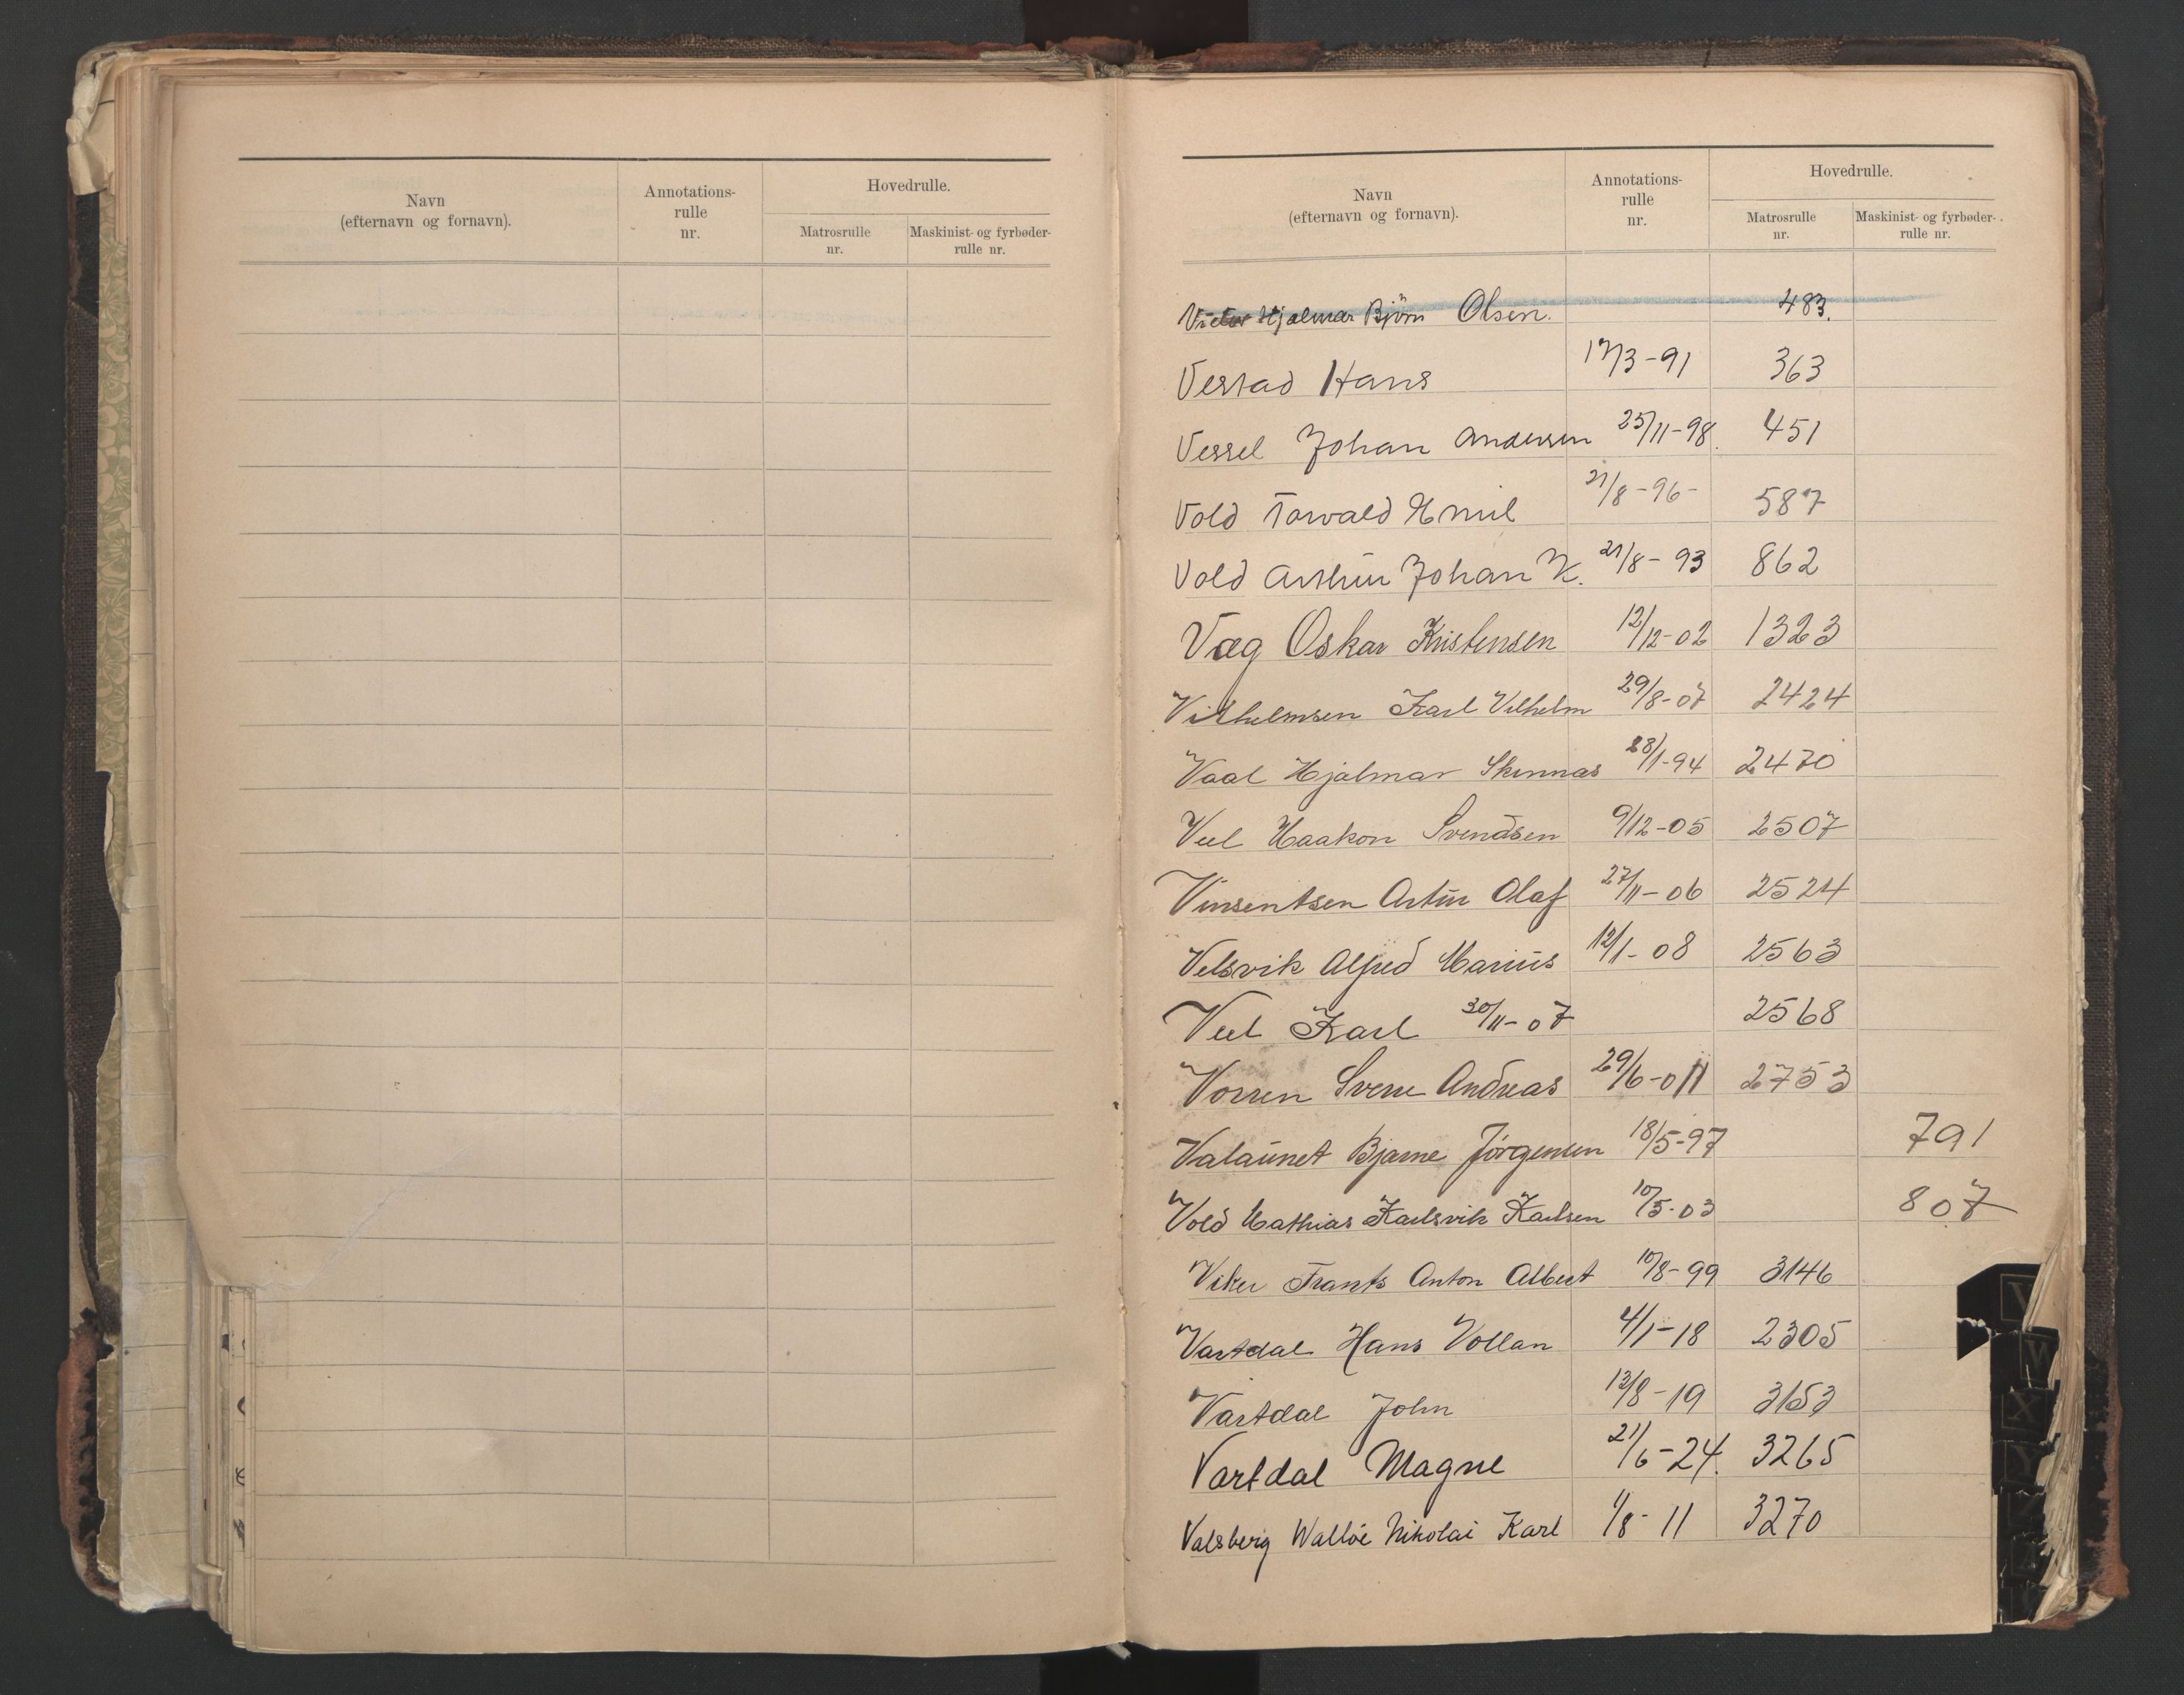 Navn
(efternavn og fornavn).
Annotations-
rulle
nr.
Hovedrulle.
Matrosrulle
nr.
Maskinist- og fyrbøder-
rulle nr.
Navn
(efternavn og fornavn).
Annotations-
rulle
nr.
Hovedrulle.
Matrosrulle
nr.
Maskinist- og fyrbøder-
rulle nr.
Victor Hjalmar Björn Olsen. 483.
Vestad Hans 17/3-91 363
Vessel Johan Andersen 25/11-98. 451
Vold Torvald Emil 21/8-96- 587
Vold Arthur Johan K. 21/8-93 862
Vaag Oskar Kristensen 12/12-02 1323
Vilhelmsen Karl Vilhelm 29/8-07 2424
Vaal Hjalmar 28/1-94 2470
Veel Haakon Svendsen 9/12-05 2507
Vinsentsen Artur Olaf 27/11-06 2524
Velsvik Alfred Marius 12/1-08 2563
Veel Karl 30/11-07 2568
Vorren Sverre Andreas 29/6-011 2753
Valaunet Bjarne Jörgensen 18/5-97 791
Vold Mathias Karlsvik Karlsen 10/5-03 807
Viker Frants Anton Albert 10/8-99 3146
Vartdal Hans Vollan 4/1-18 2305
Vartdal John 13/8-19 3153
Vartdal Magne 21/6-24. 3265
Valsberg Wallöe Nikolai Karl 1/8-11 3270
V
W
X
Y